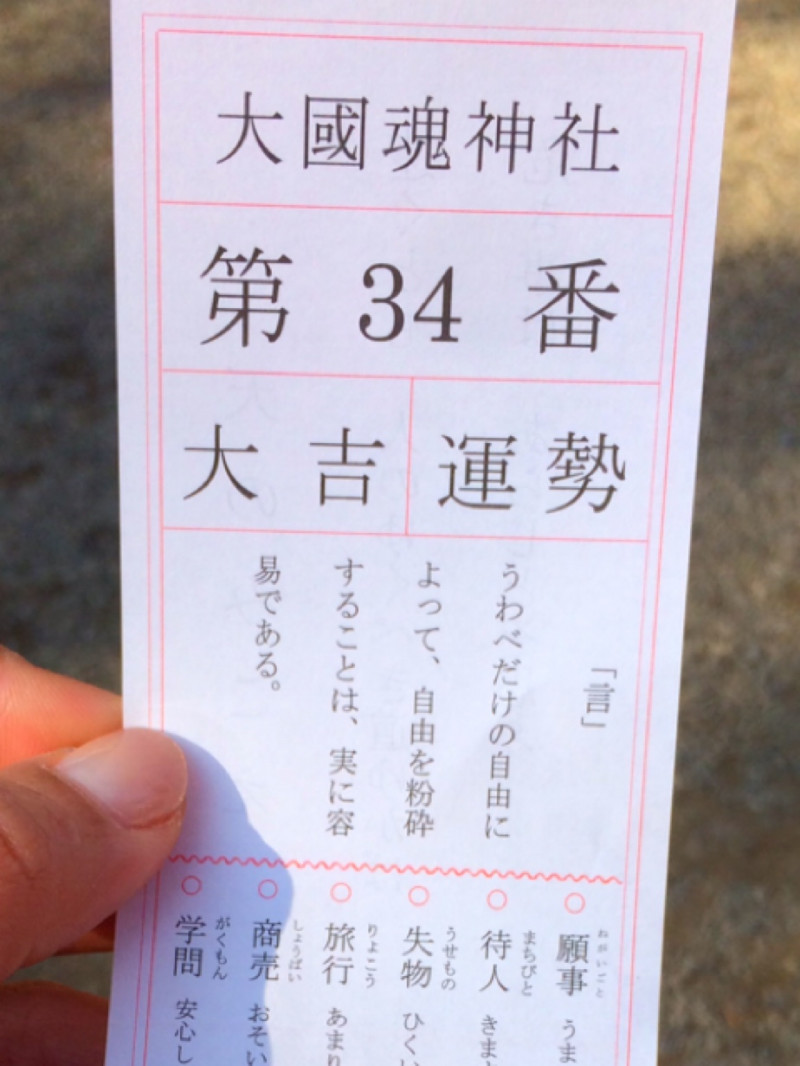 大國魂神社
第 34 番
大吉 運勢
「言」
うわべだけの自由に
よって、自由を粉砕
することは、実に容
易である。
願事 ねがいごと うま
待人 まちびと きま
失物 うせもの ひく
旅行 りょこう あまり
商売 しょうばい おそい
学問 がくもん 安心し